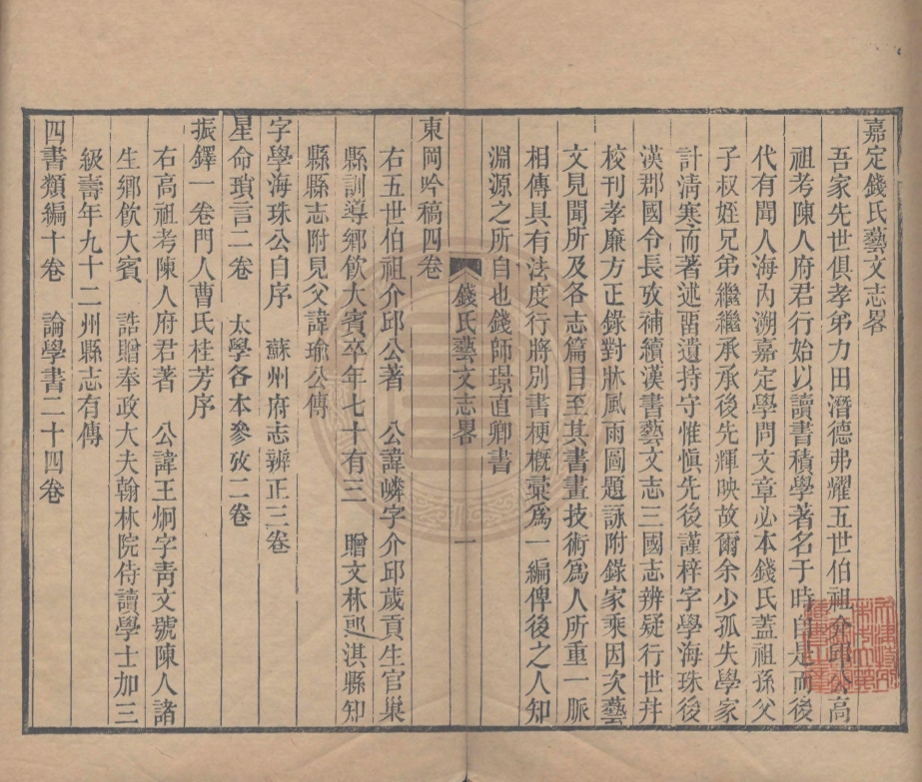 嘉定錢氏藝文志畧
吾家先世俱孝弟力田潛德弗耀五世伯祖介邱公高
祖考陳人府君行始以讀書積學著名于時自是而後
代有聞人海內溯嘉定學問文章必本錢氏蓋祖孫父
子叔姪兄弟繼繼承承後先輝映故爾余少孤失學家
計淸寒而著述畱遺持守惟愼先後謹梓字學海珠後
漢郡國令長攷補續漢書藝文志三國志辨疑行世幷
校刊孝廉方正錄對牀風雨圖題詠附錄家乘因次藝
文見聞所及各志篇目至其書畫技術爲人所重一脈
相傳具有法度行將別書梗概彙爲一編俾後之人知
淵源之所自也錢師璟直卿書
錢氏藝文志畧 一
東岡吟稿四卷
右五世伯祖介邱公著 公諱嶙字介邱歲貢生官巢
縣訓導鄉飮大賓卒年七十有三 贈文林郎淇縣知
縣縣志附見父諱瑜公傳
字學海珠公自序 蘇州府志辨正三卷
星命瑣言二卷 太學各本參攷二卷
振鐸一卷門人曹氏桂芳序
右高祖考陳人府君著 公諱王炯字靑文號陳人諸
生鄉飮大賓 誥贈奉政大夫翰林院侍讀學士加三
級壽年九十二州縣志有傳
四書類編十卷 論學書二十四卷